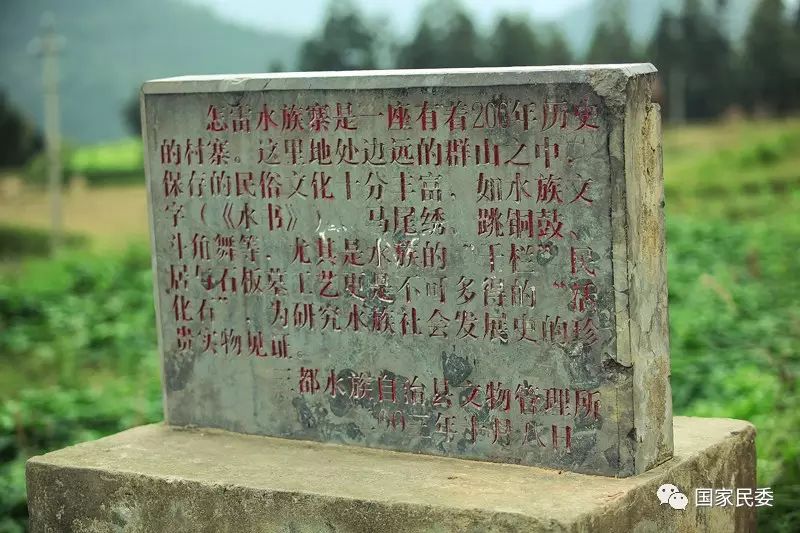 怎雷水族寨是一座有着200年历史
的村寨。这里地处边远的群山之中，
保存的民俗文化十分丰富，如水族文
字（《水书》）、马尾绣、跳铜鼓、
斗角舞等，尤其是水族的“干栏”民
居与石板墓工艺更是不可多得的“活
化石”，为研究水族社会发展史的珍
贵实物见证。
三都水族自治县文物管理所
年十月八日
国家民委